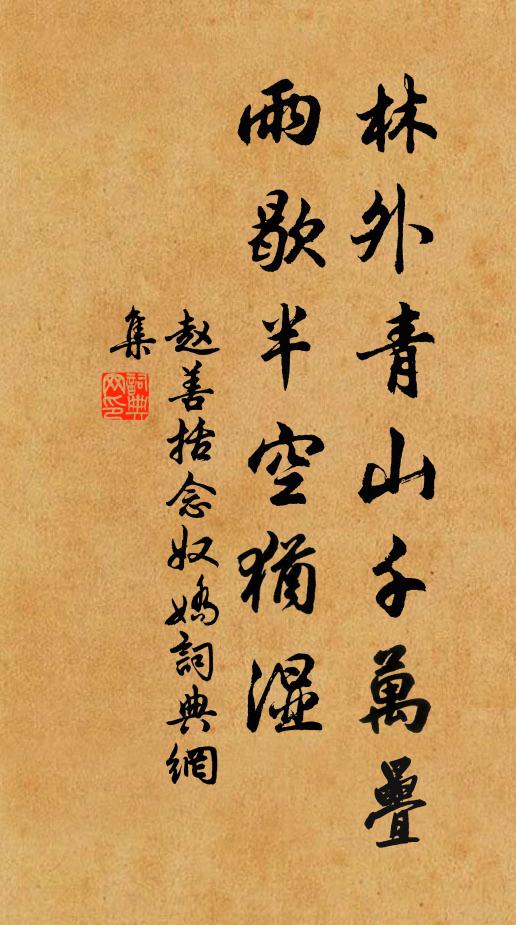 林外青山千萬疊
雨歇半空猶濕
赵善括念奴嬌詞典網
集
詞典网印